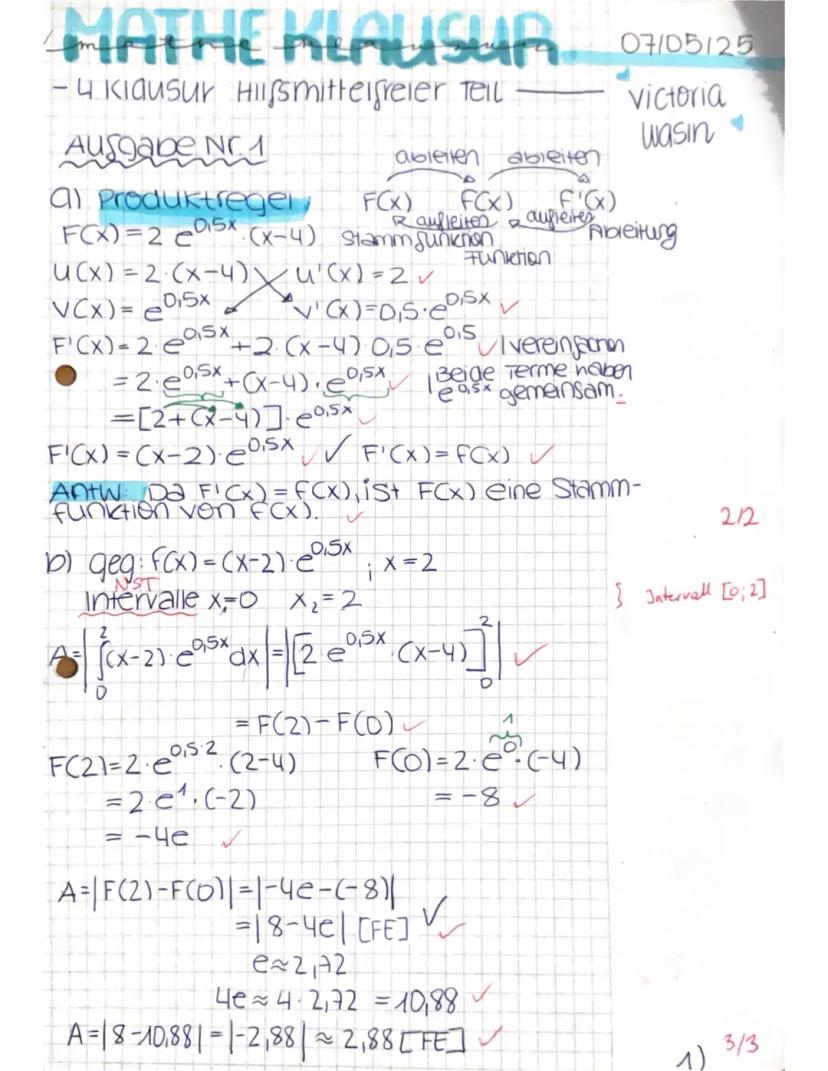 MATHE KLAUSUR 07/05/25
mathe klausur
- 4 Klausur Hilfsmittelfreier Teil
victoria
wasin
Aufgabe Nr. 1
ableiten ableiten
a) Produktregel F(x) f(x) f'(x)
aufleiten aufleiten
F(x) = 2 e^0,5x · (x-4) Stammfunktion Ableitung
Funktion
u(x) = 2 · (x-4) u'(x) = 2 ✓
v(x) = e^0,5x v'(x) = 0,5 · e^0,5x ✓
F'(x) = 2 · e^0,5x + 2 · (x-4) 0,5 · e^0,5 ✓ | vereinfachen
= 2 · e^0,5x + (x-4) · e^0,5x ✓ | Beide Terme haben
e^0,5x gemeinsam.
= [2+(x-4)] · e^0,5x ✓
F'(x) = (x-2) · e^0,5x ✓ ✓ F'(x) = f(x) ✓
Antw: Da F'(x) = f(x), ist F(x) eine Stamm-
funktion von f(x). ✓
2/2
b) geg: f(x) = (x-2) · e^0,5x ; x = 2
NST
Intervalle x₁=0 x₂=2 } Intervall [0;2]
A = | ∫₀² (x-2) · e^0,5x dx | = | [2 e^0,5x (x-4)]₀² | ✓
= F(2) - F(0) ✓
1
F(2) = 2 · e^0,5·2 · (2-4) F(0) = 2 · e^0 · (-4)
= 2 · e^1 · (-2) = -8 ✓
= -4e ✓
A = |F(2) - F(0)| = |-4e-(-8)|
= |8-4e| [FE] ✓ ✓
e ≈ 2,72
4e ≈ 4 · 2,72 = 10,88 ✓
A = |8-10,88| = |-2,88| ≈ 2,88 [FE] ✓
3/3
1)